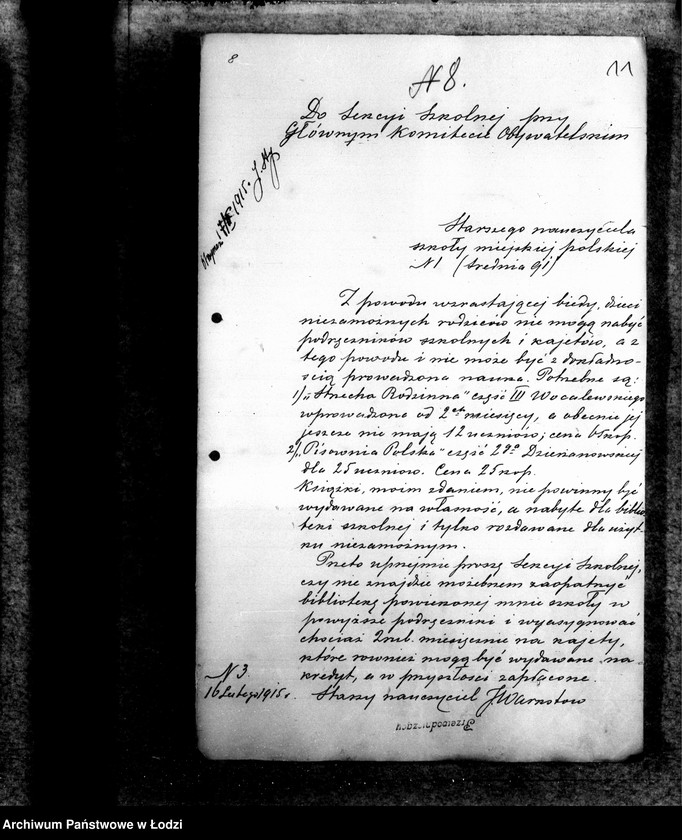 8
N 8.
11
Do Sekcyi Szkolnej przy
Głównym Komitecie Obywatelskim
1915 r.
Starszego nauczyciela
szkoły miejskiej polskiej
N 1 (Srednia 91)
Z powodu wzrastającej biedy, dzieci
niezamożnych rodziców nie mogą nabyć
podręczników szkolnych i kajetów, a z
tego powodu i nie może być z dokładno-
ścią prowadzona nauka. Potrzebne są:
1) „Strzecha Rodzinna" część III Wocalewskiego
wprowadzona od 2ch miesięcy, a obecnie jej
jeszcze nie mają 12 uczniów; cena 65 kop.
2) „Pisownia Polska" część 2ga Dzierżanowskiej
dla 25 uczniów. Cena 25 kop.
Książki, moim zdaniem, nie powinny być
wydawane na własność, a nabyte dla biblio
teki szkolnej i tylko rozdawane dla użyt-
ku niezamożnym.
Przeto uprzejmie proszę Sekcyi Szkolnej,
czy nie znajdzie możebnem zaopatrzyć
bibliotekę powierzonej mnie szkoły w
powyższe podręczniki i wyasygnować
chociaż 2 rub. miesięcznie na kajety,
które rownież mogą być wydawane na
kredyt, a w przyszłości zapłacone.
N 3
16 Lutego 1915 r.
Starszy nauczyciel J Warnstow
Archiwum Państwowe w Łodzi